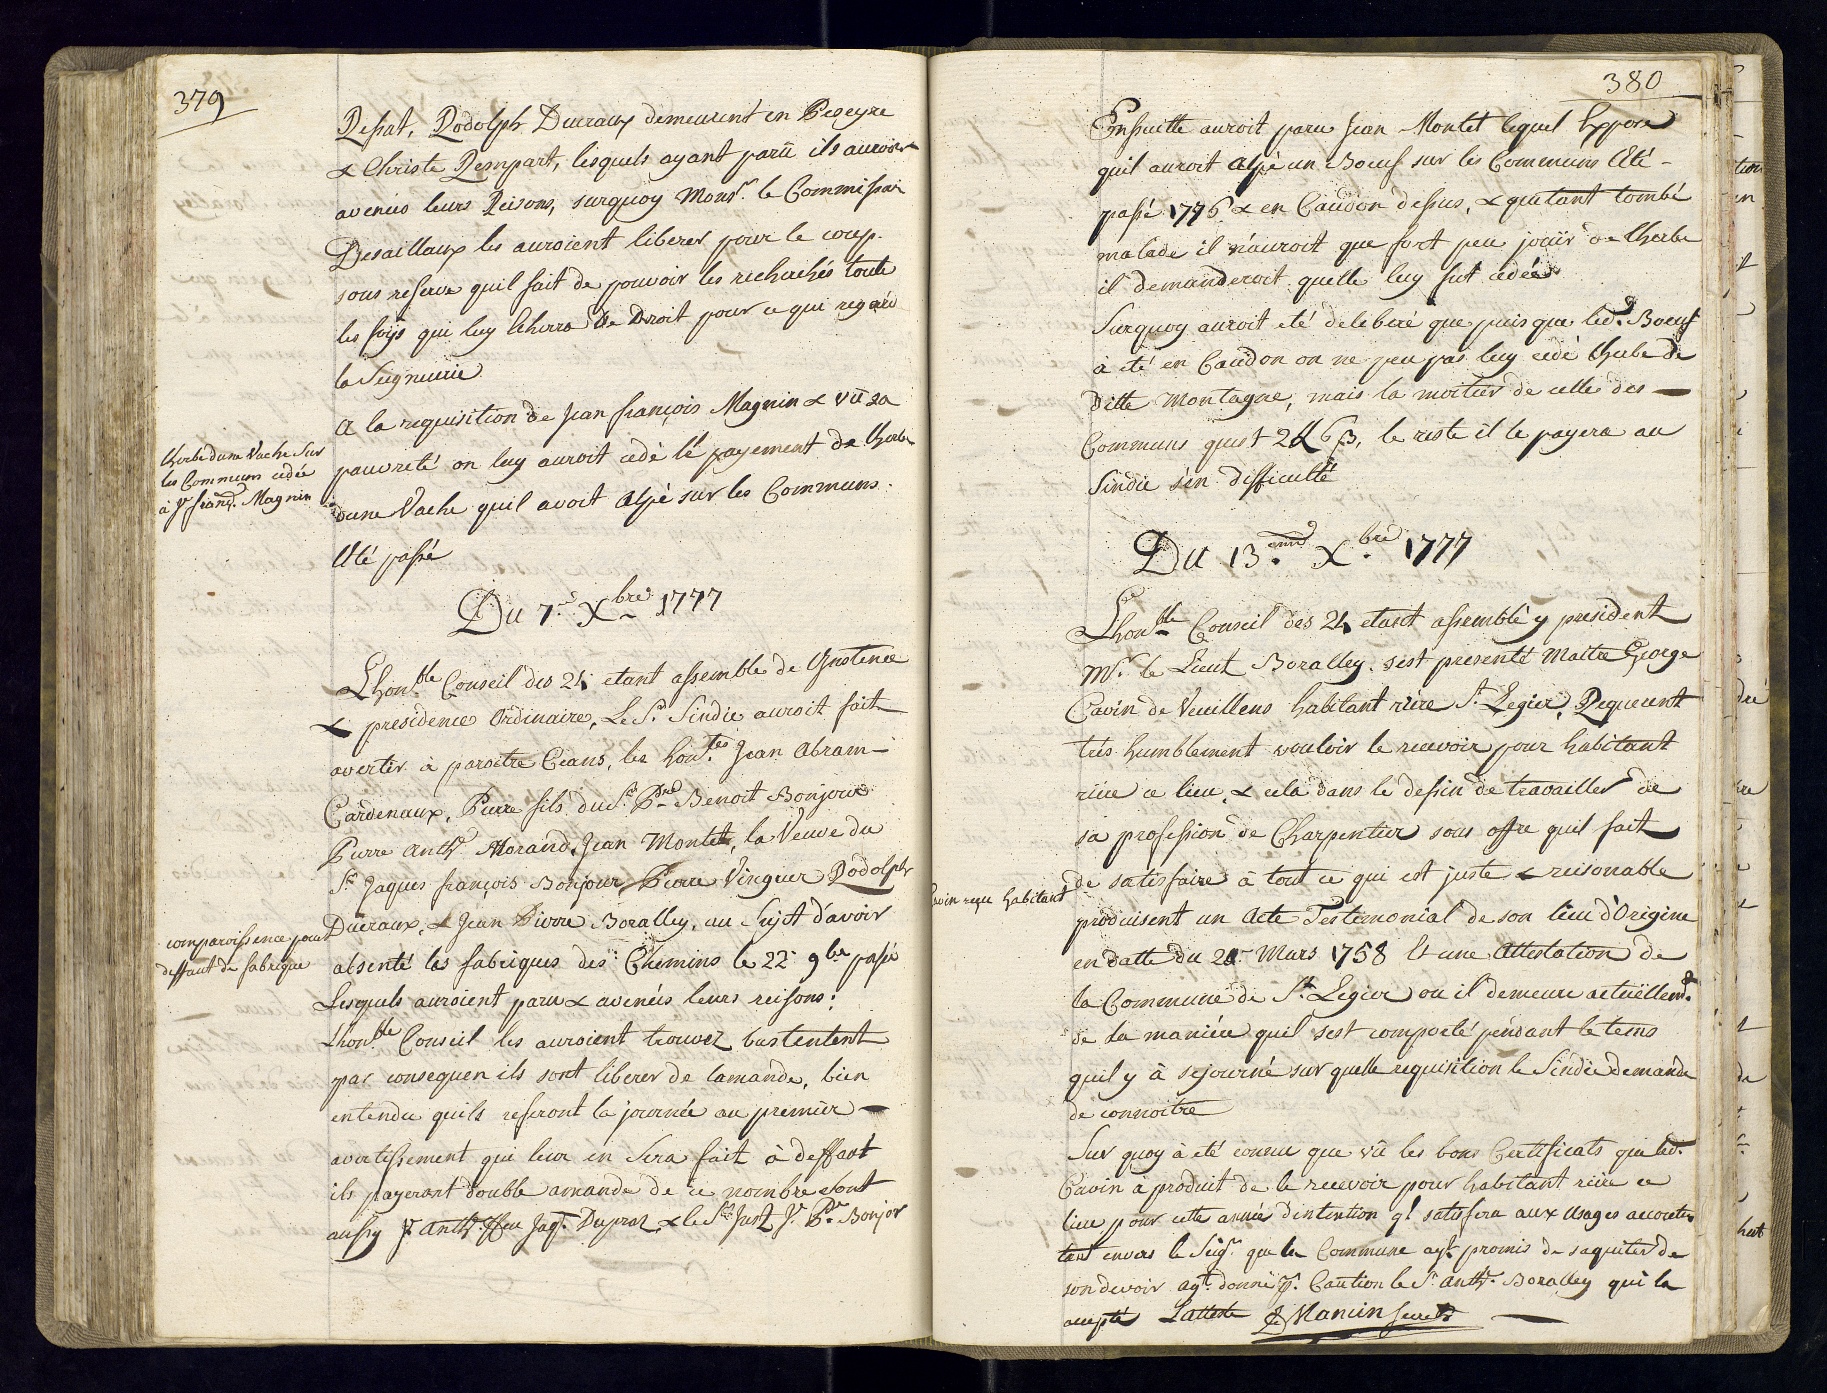 379
Pessat, Rodolph Ducraux demeurent en Peseyre
& Christe Rempart, lesquels ayant parü ils auroient
avenües leurs Reisons, surquoy Monsr. le Commissair
Desaillaux les auroient liberer pour le coup
sous reserve quil fait de pouvoir les recherchés toute
les foÿs qui luy Eherra de Droit pour ce qui regard
la Seigneurie
A la requisition de Jean françois Magnin & vü sa
Lherbe dune Vache Sur
les Communs cedée
à Jn franç. Magnin
pauvreté on luy auroit cedé le payement de Lherbe
dune Vache quil avoit Alpé sur les Communs.
Eté passé
Du 7e. Xbre 1777
Lhonble Conseil des 24 etant assemble de Gustence
& presidence Ordinaire, Le Sr. Sindic auroit fait
avertir à paroitre Ceans, les Honles Jean Abram
Cardenaux, Pierre fils du Sr. Pre Benoit Bonjour
Pierre Anth. Morand, Jean Montet, la Veuve du
Sr. Jaques françois Bonjour, Pierre Vinguer Rodolph
Ducraux, & Jean Pierre Boralley, au Sujet d'avoir
comparoissence pour
deffaut de fabrique
absenté les fabriques des Chemins le 22e 9bre passé
Lesquels auroient paru & avenües leurs reisons:
Lhonble Conseil les auroient trouvez bastentent
par consequen ils sont liberer de lamande, bien
entendu quils referont la journée au premier
avertissement qui leur en Sera fait à deffaut
ils payeront double amande de ce nombre etont
aussy Jn Anth. ffeu Jaq. Dupraz & le Sr. Just Jn. Pr. Bonjor
380
Ensuitte auroit paru Jean Montet lequel Expose
quil auroit Alpé un Boeuf sur les Communs Eté
passé 1776 & en Caudon dessus, & quetant tombé
malade il n'auroit que fort peu jouir de Lherbe
il demanderoit quelle luy fut cedée
Surquoy auroit eté deleberé que puis que led. Boeuf
à eté en Caudon on ne peu pas luy cedé Lherbe de
Ditte Montagne, mais la moitier de celle des
Communs quest 2 ll 6 ß, le reste il le payera au
Sindic s'en difficulté
Du 13eme. Xbre. 1777
Lhonble Conseil des 24 etant assemblé y president
Mr. le Lieut Boralley sest presenté Maitre George
Cavin de Veuillens habitant riere St. Legier, Requerent
tres humblement vouloir le recevoir pour habitant
riere ce lieu, & cela dans le dessin de travailler de
sa profession de Charpentier sous offre quil fait
Cavin reçu habitant
de satisfaire à tout ce qui est juste & reisonable
produisent un Acte Testemonial de son lieu d'Origine
en datte du 20 Mars 1758 Et une Attestation de
la Commune de St. Legier ou il demeure actuellemt.
de la maniere quil sest comporté pendant le tems
quil y à sejourné sur quelle requisition le Sindic demande
de connoitre
Sur quoy à eté connu que vü les bons Certificats que led.
Cavin à produit de le recevoir pour habitant riere ce
lieu pour cette année dintention ql satisfera aux Usages accoutu
tant envers le Seigr. que la Commune ayt promis de saquiter de
son devoir agt. donné pr. Caution le Sr. Anth. Boralley qui la
accepté Latteste J Mamin Secret.